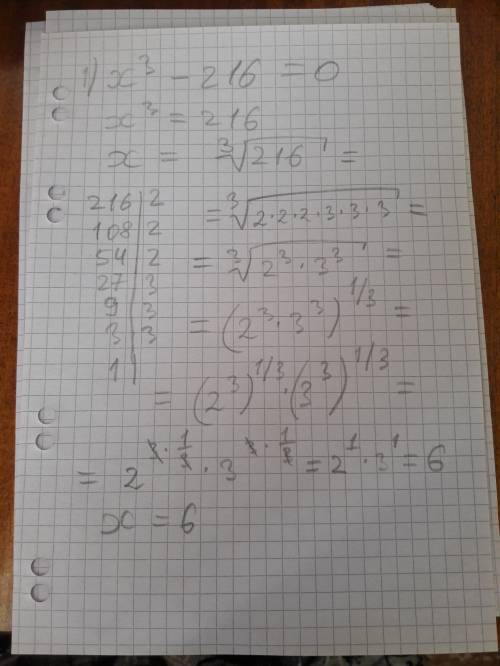 1) x³ - 216 = 0
x³ = 216
x = ∛216 =
216 | 2
108 | 2
54 | 2
27 | 3
9 | 3
3 | 3
1 |
= ∛2·2·2·3·3·3 =
= ∛2³·3³ =
= (2³·3³)^1/3 =
= (2³)^1/3 · (3³)^1/3 =
= 2^3·1/3 · 3^3·1/3 = 2¹·3¹ = 6
x = 6